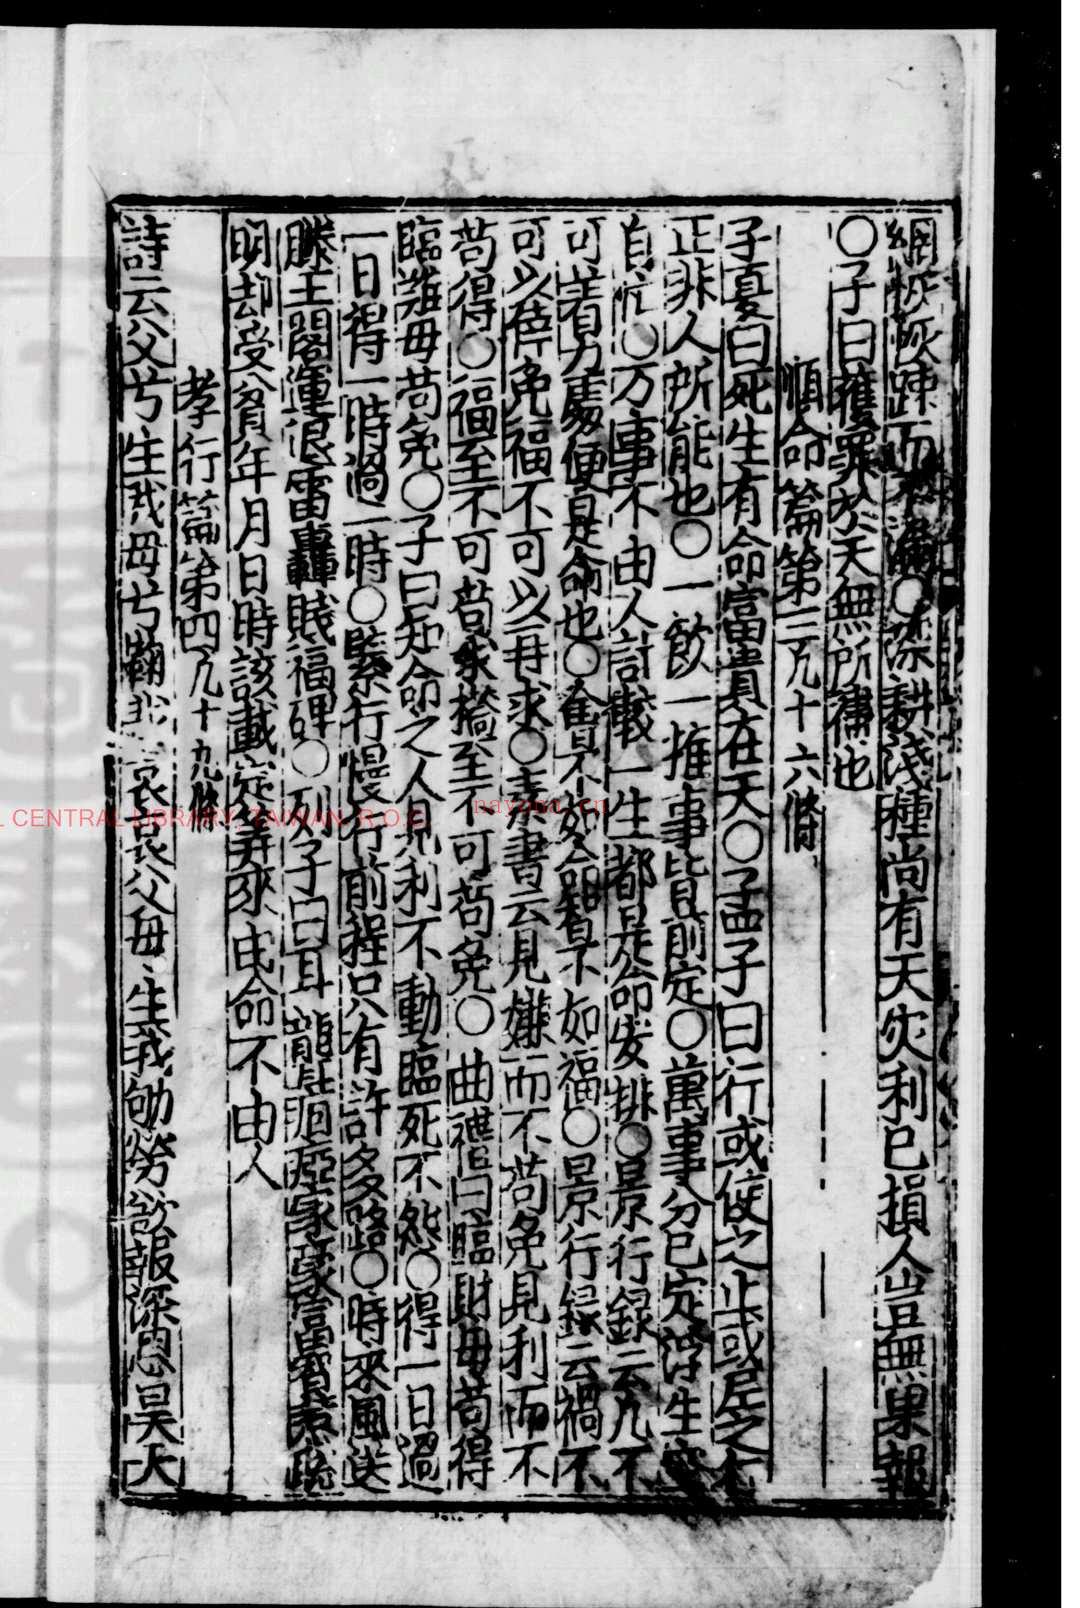 網恢恢踈而不漏○深耕浅種尚有天灾利已損人豈無果報
○子曰獲罪於天無所禱也
順命篇第三凢十六條
子夏曰死生有命富貴在天○孟子曰行或使之止或尼之行
正非人所能也○一飲一推事皆前定○萬事分已定浮生空
自忙○万事不由人計較一生都是命安排○景行録云凢不
可着力處便是命也○會不如命智不如福○景行録云禍不
可以倖免福不可以再求○素書云見嫌而不苟免見利而不
苟得○福至不可苟求禍至不可苟免○曲禮曰臨財毋苟得
臨難毋苟免○子曰知命之人見利不動臨死不怨○得一日過
一日得一時過一時○緊行慢行前程只有許多路○時來風送
滕王閣運退雷轟賎福碑○列子曰耳聾痼瘂家豪富智慧聰
明却受貧年月日時該載定筭來由命不由人
孝行篇第四凢十九條
詩云父兮生我母兮鞠我哀哀父母生我劬勞欲報深恩昊天
NATIONAL CENTRAL LIBRARY, TAIWAN, R.O.C.
nayona.cn